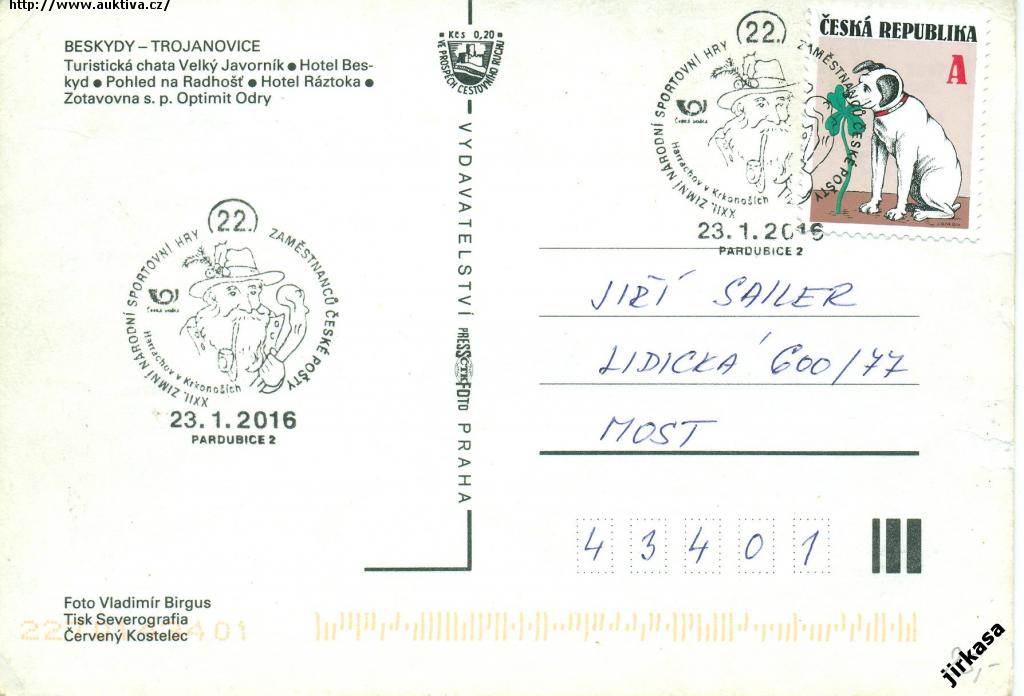 http://www.auktiva.cz/
BESKYDY – TROJANOVICE
Turistická chata Velký Javorník ● Hotel Bes-
kyd ● Pohled na Radhošť ● Hotel Ráztoka ●
Zotavovna s. p. Optimit Odry
Kčs 0,20
VE PROSPĚCH CESTOVNÍHO RUCHU
22.
XXII. ZIMNÍ NÁRODNÍ SPORTOVNÍ HRY ZAMĚSTNANCŮ ČESKÉ POŠTY
Česká pošta
Harrachov v Krkonoších
23.1.2016
PARDUBICE 2
ČESKÁ REPUBLIKA
A
22.
XXII. ZIMNÍ NÁRODNÍ SPORTOVNÍ HRY ZAMĚSTNANCŮ ČESKÉ POŠTY
Česká pošta
Harrachov v Krkonoších
23.1.2016
PARDUBICE 2
VYDAVATELSTVÍ PRESSFOTO PRAHA
ČTK
JIŘÍ SAILER
LIDICKÁ 600/77
MOST
43401
Foto Vladimír Birgus
Tisk Severografia
Červený Kostelec
jirkasa